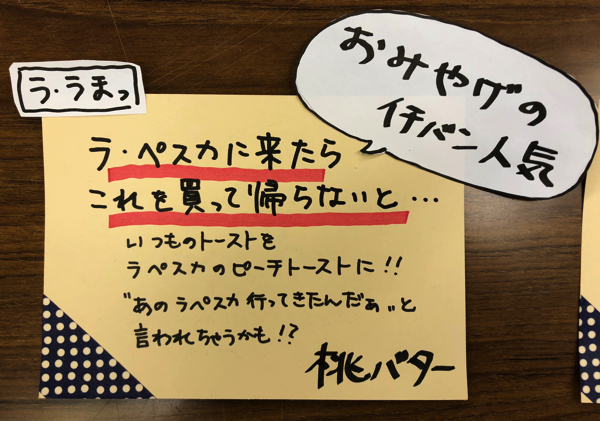 おみやげの
イチバン人気
ラ・うまっ
ラ・ペスカに来たら
これを買って帰らないと…
いつものトーストを
ラペスカのピーチトーストに!!
"あのラペスカ行ってきたんだぁ"と
言われちゃうかも!?
桃バター